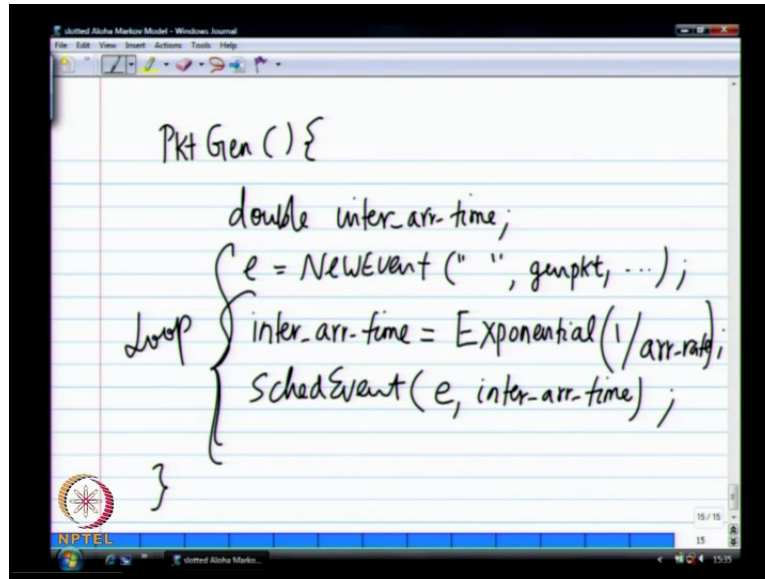 slotted Aloha Markov Model - Windows Journal
File Edit View Insert Actions Tools Help
Pkt Gen () {
double inter_arr-time;
e = NewEvent (" ", genpkt, ...);
Loop
inter_arr-time = Exponential (1/arr-rate);
SchedEvent (e, inter_arr-time) ;
}
NPTEL
15 / 15
15
slotted Aloha Marko...
15:35